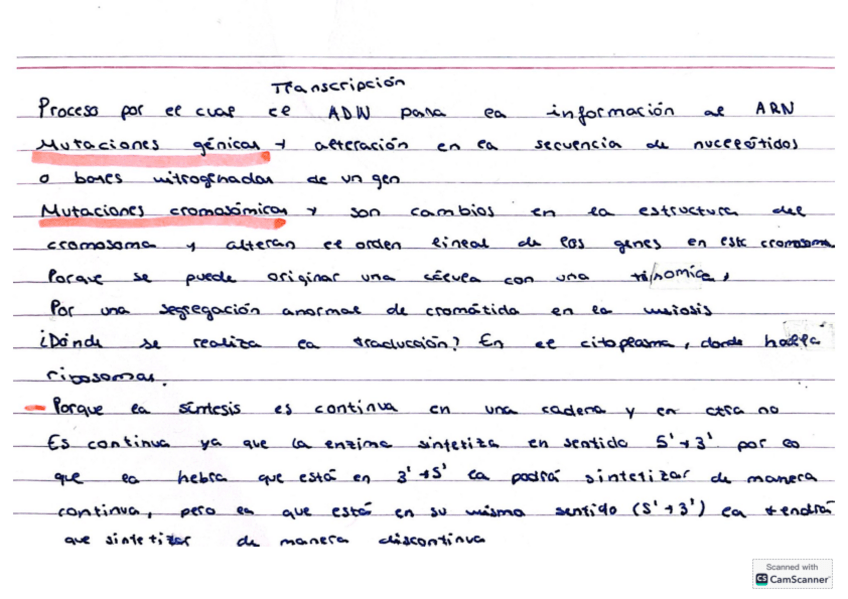 Transcripción
Proceso por el cual el ADN pasa la información al ARN
Mutaciones génicas → alteración en la secuencia de nucleótidos
o bases nitrogenadas de un gen
Mutaciones cromosómicas → son cambios en la estructura del
cromosoma y alteran el orden lineal de los genes en este cromosoma
Porque se puede originar una célula con una
Por una segregación anormal de cromátida en la meiosis
¿Dónde se realiza la traducción? En el citoplasma, donde
ribosomas.
- Porque la síntesis es continua en una cadena y en otra no
Es continua ya que la enzima sintetiza en sentido 5'→3' por lo
que la hebra que está en 3'→5' la podrá sintetizar de manera
continua, pero la que está en su mismo sentido (5'→3') la tendrá
que sintetizar de manera discontinua
Scanned with
CS CamScanner